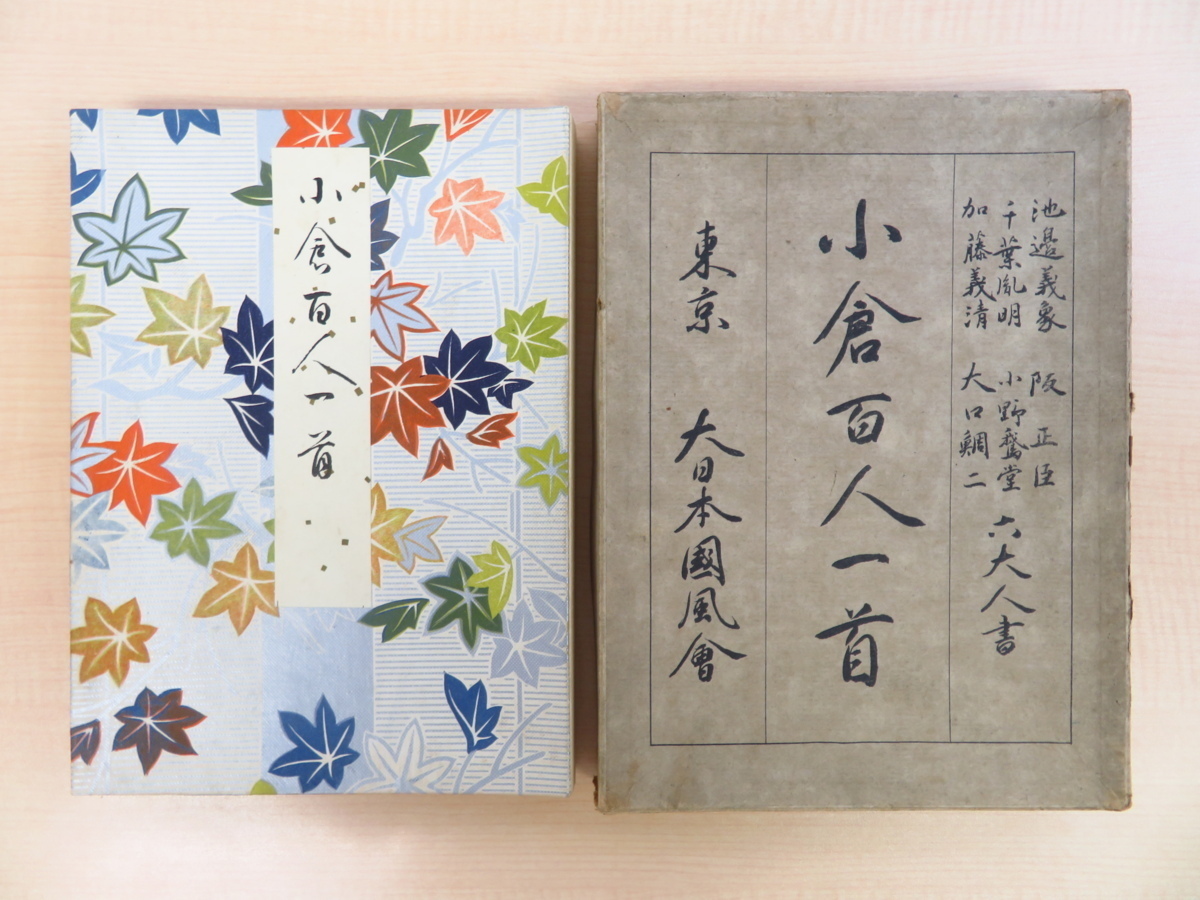 小倉百人一首
池邊義象 阪正臣
千葉胤明 小野鵞堂 六大人書
加藤義清 大口鯛二
小倉百人一首
東京 大日本國風會